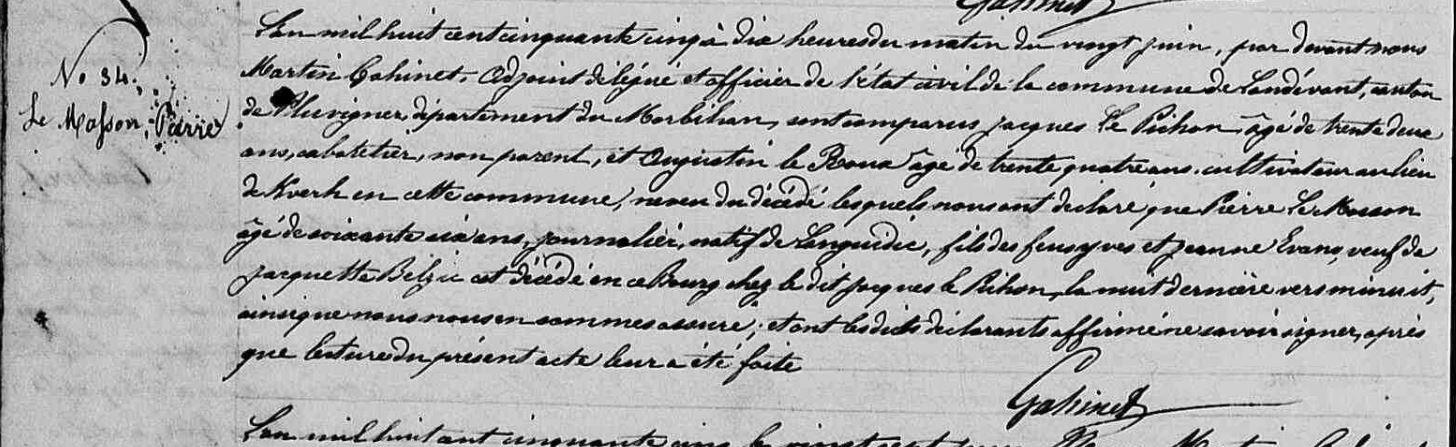 Gahinet
No 34.
Le Masson, Pierre
L'an mil huit cent cinquante cinq à dix heures du matin du vingt juin, par devant nous
Martin Gahinet, Adjoint délégué et officier de l'état civil de la commune de Landévant, canton
de Pluvigner, département du Morbihan, sont comparus jacques Le Pihon, âgé de trente deux
ans, cabaretier, non parent, et Augustin le Roux âgé de trente quatre ans, cultivateur au lieu
de Kverh en cette commune, neveu du décédé lesquels nous ont déclaré que Pierre Le Masson
âgé de soixante six ans, journalier, natif de Languidic, fils des feus yves et jeanne Evano, veuf de
jacquette Belzic est décédé en ce Bourg chez le dit jacques le Pihon, la nuit dernière vers minuit,
ainsi que nous nous en sommes assuré; et ont les dits déclarants affirmé ne savoir signer, après
que lecture du présent acte leur a été faite
Gahinet
L'an mil huit cent cinquante cinq le vingt Martin